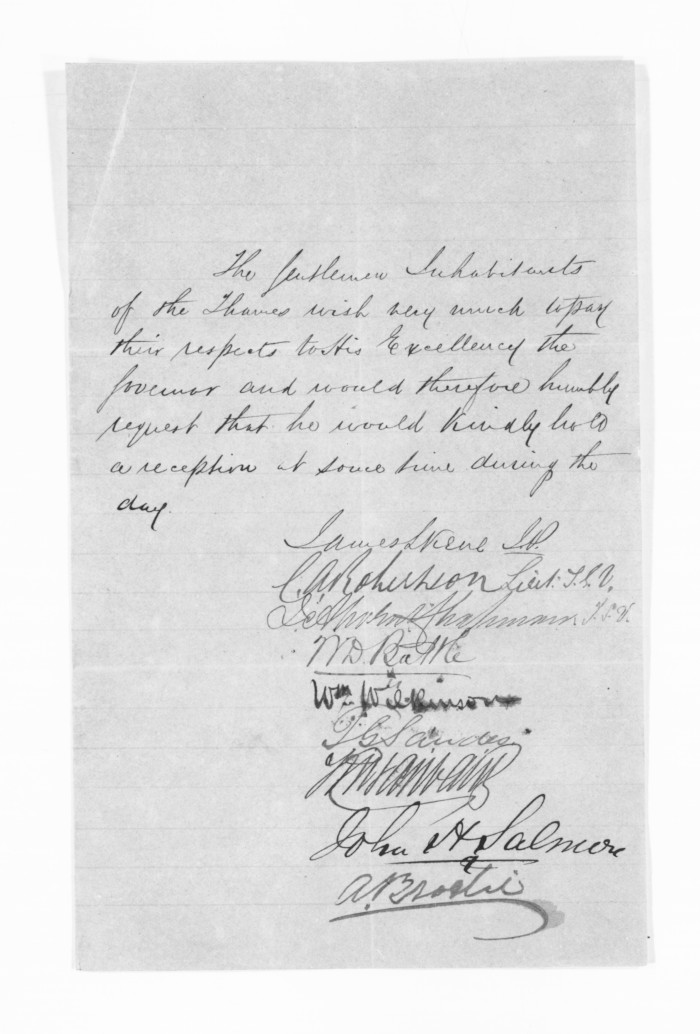 The Gentlemen Inhabitants
of the Thames wish very much to pay
their respects to His Excellency the
Governor and would therefore humbly
request that he would kindly hold
a reception at some time during the
day.
James Skene J.P.
C. A. Robertson Lieut. T.S.V.
T.S.V.
W. D. Battle
Wm. Wilkinson
John H Salmon
A. Brodie